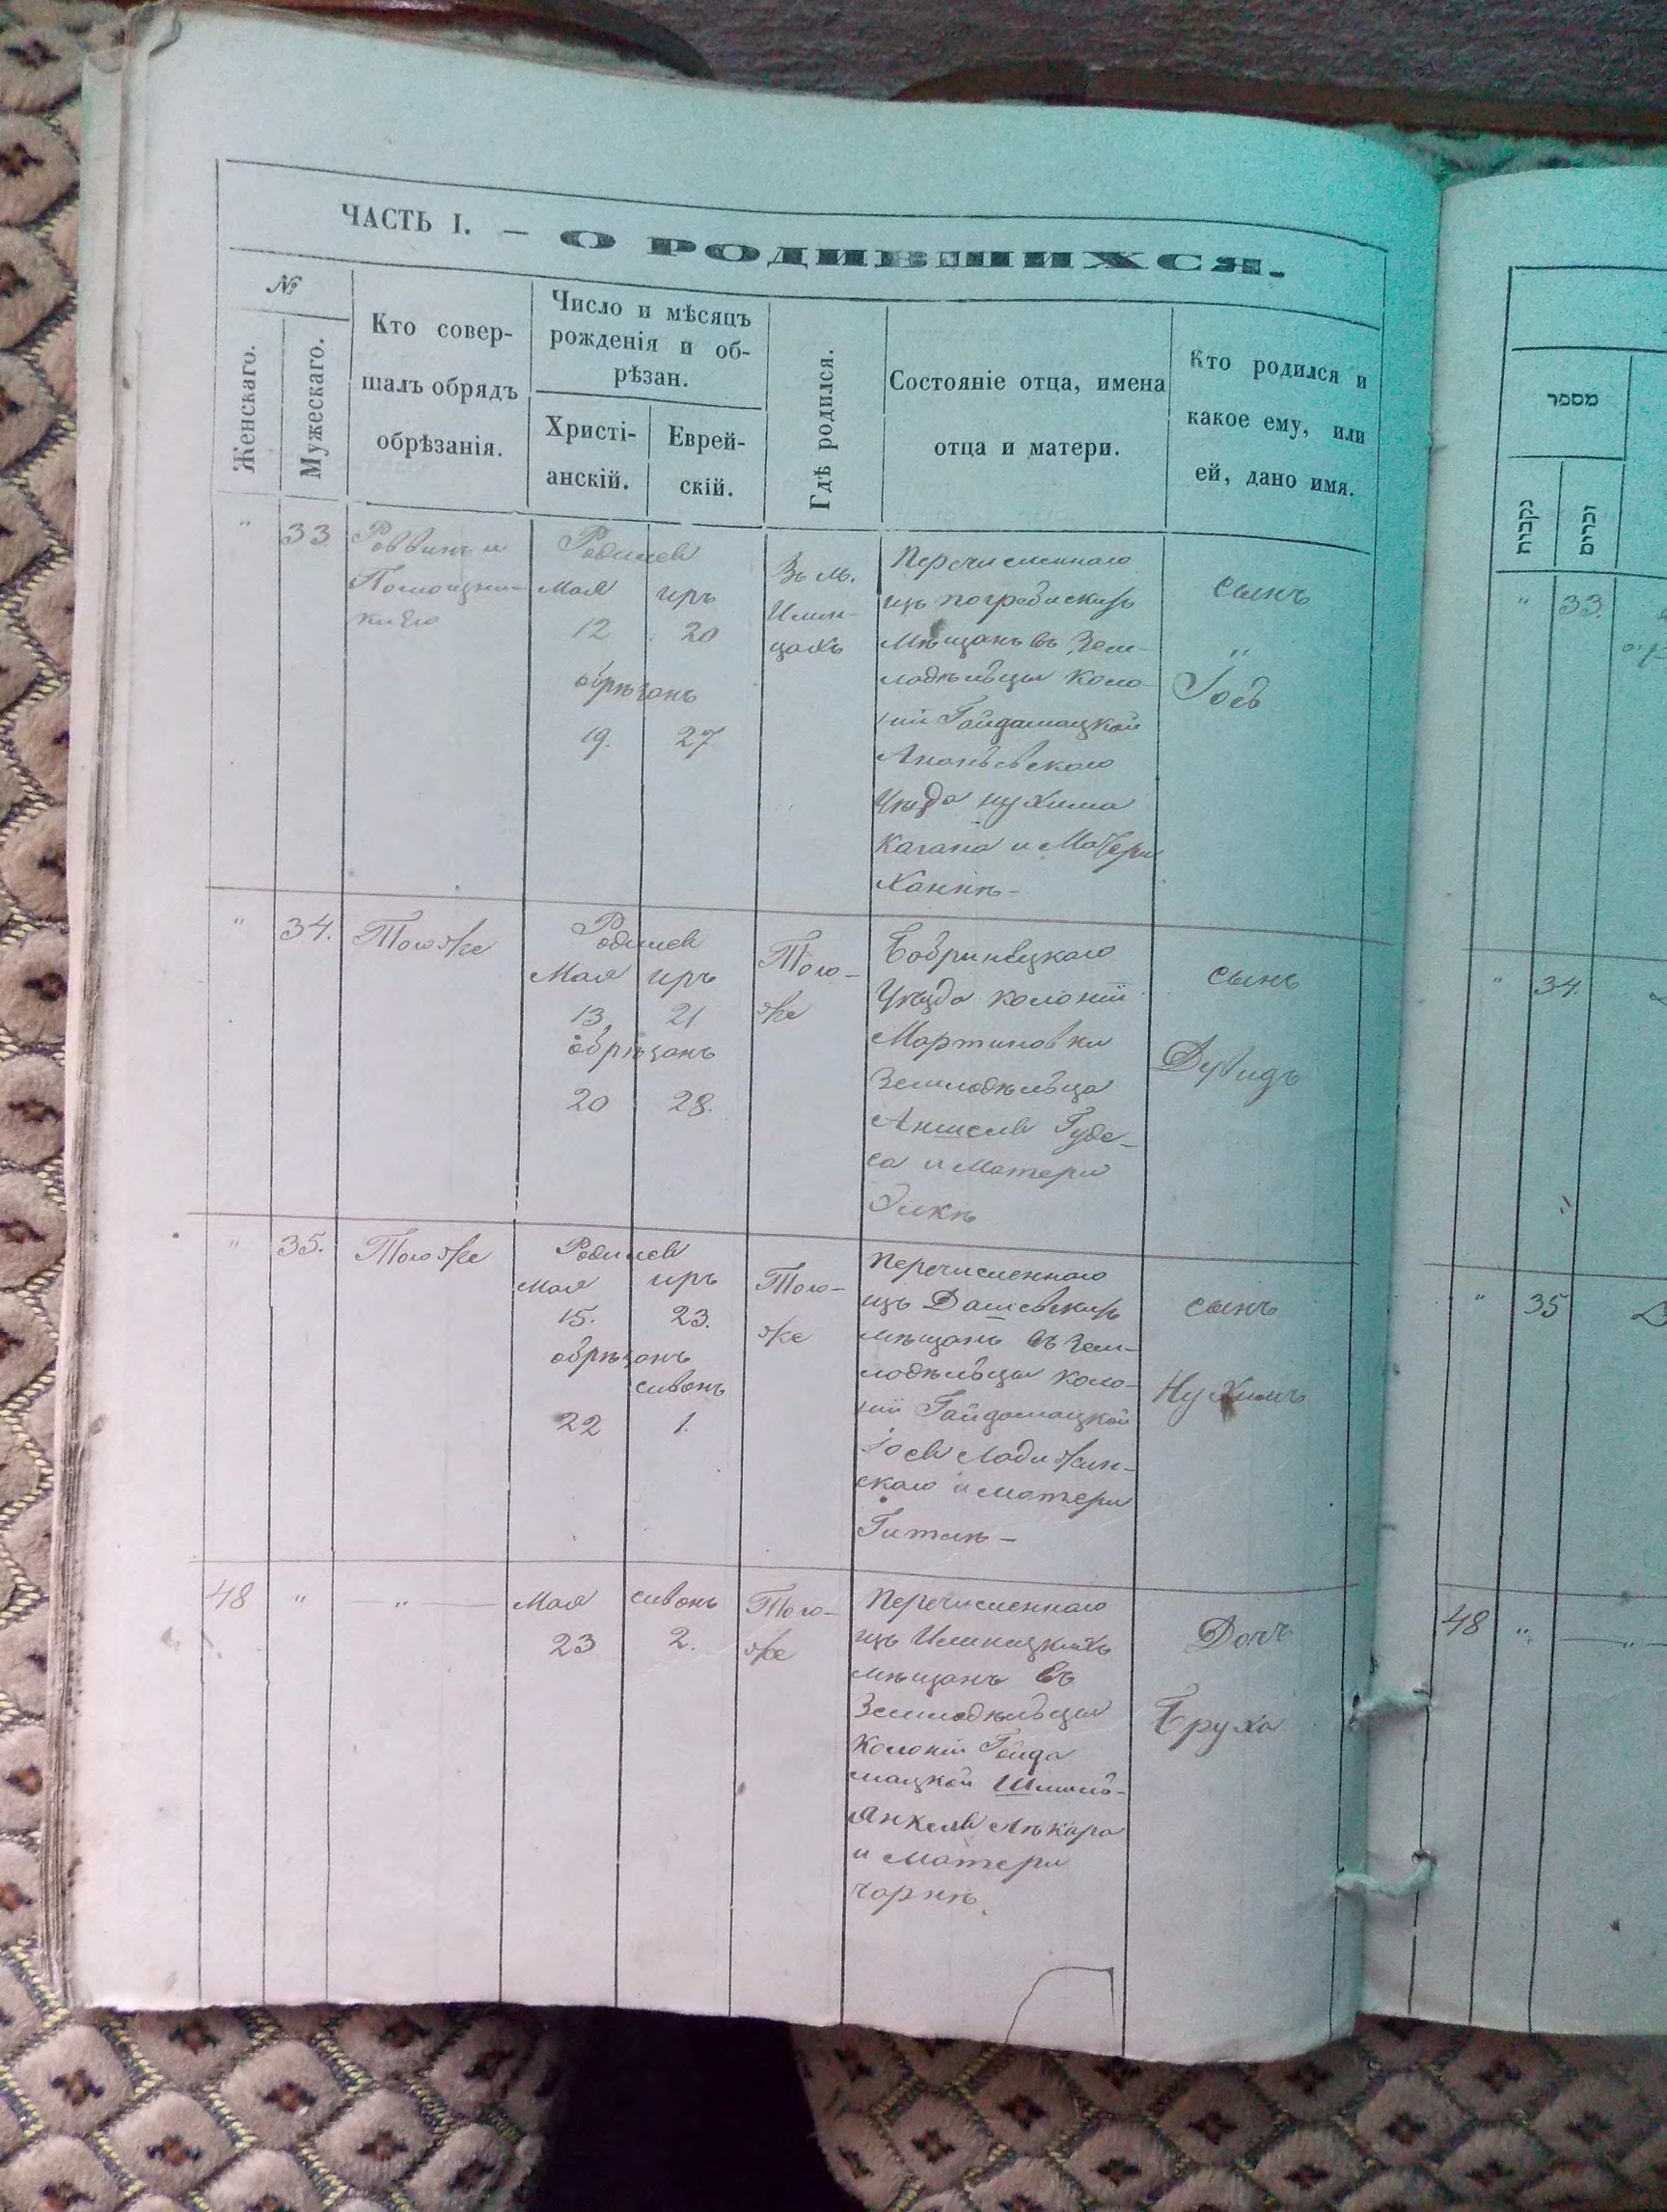 ЧАСТЬ I. — О РОДИВШИХСЯ.
№
Женскаго.
Мужескаго.
Кто совер-
шалъ обрядъ
обрѣзанія.
Число и мѣсяцъ
рожденія и об-
рѣзан.
Христі-
анскій.
Еврей-
скій.
Гдѣ родился.
Состояніе отца, имена
отца и матери.
Кто родился и
какое ему, или
ей, дано имя.
" 33
Раввинъ и
Помощни-
ки Его
Родился
Мая иръ
12 20
обрѣзанъ
19. 27
Въ м.
Илин-
цахъ
Перечисленнаго
изъ погребискихъ
мѣщанъ въ Зем-
ледѣльцы коло-
ніи Гайдамацкой
Ананьевскаго
Уѣзда Нухима
Кагана и Матери
Ханнѣ —
сынъ
"
Іосъ
" 34.
Того же
Родился
Мая иръ
13, 21
обрѣзанъ
20 28.
Того-
же
Бобринецкаго
Уѣзда колоніи
Мартиновки
Земледѣльца
Аншеля
са и Матери
Элькѣ
сынъ
Дувидъ
" 35.
Того же
Родился
Мая иръ
15. 23.
обрѣзанъ
сивонъ
22 1.
Того-
же
Перечисленнаго
изъ Дашевскихъ
мѣщанъ въ Зем-
ледѣльцы коло-
ніи Гайдамацкой
Іося Ладижин-
скаго и матери
Гитлѣ —
сынъ
Нухимъ
48 " — " —
Мая сивонъ
23 2.
Того-
же
Перечисленнаго
изъ Илинецкихъ
мѣщанъ въ
Земледѣльцы
Колоніи Гайда
мацкой Шмиль-
Янкеля Лѣкара
и Матери
Чарнѣ.
Дочь
Бруха
מספר
נקבות
זכרים
" 33.
" 34.
" 35
48 " — " —